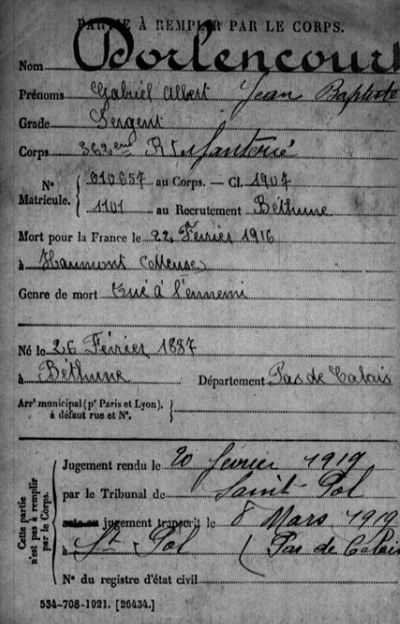 PARTIE À REMPLIR PAR LE CORPS.
Nom Dorlencourt
Prénoms Gabriel Albert Jean Baptiste
Grade Sergent
Corps 362eme Rt Infanterie
N° Matricule. { 010657 au Corps. — Cl. 1907
1101 au Recrutement Béthune
Mort pour la France le 22 Février 1916
à Haumont (Meuse)
Genre de mort Tué à l'ennemi
Né le 26 Février 1887
à Béthune Département Pas de Calais
Arrt municipal (pr Paris et Lyon), à défaut rue et N°. }
Cette partie n'est pas à remplir par le Corps. {
Jugement rendu le 20 février 1919
par le Tribunal de Saint-Pol
jugement transcrit le 8 Mars 1919
à St Pol (Pas de Calais
N° du registre d'état civil
534-708-1921. [26434.]